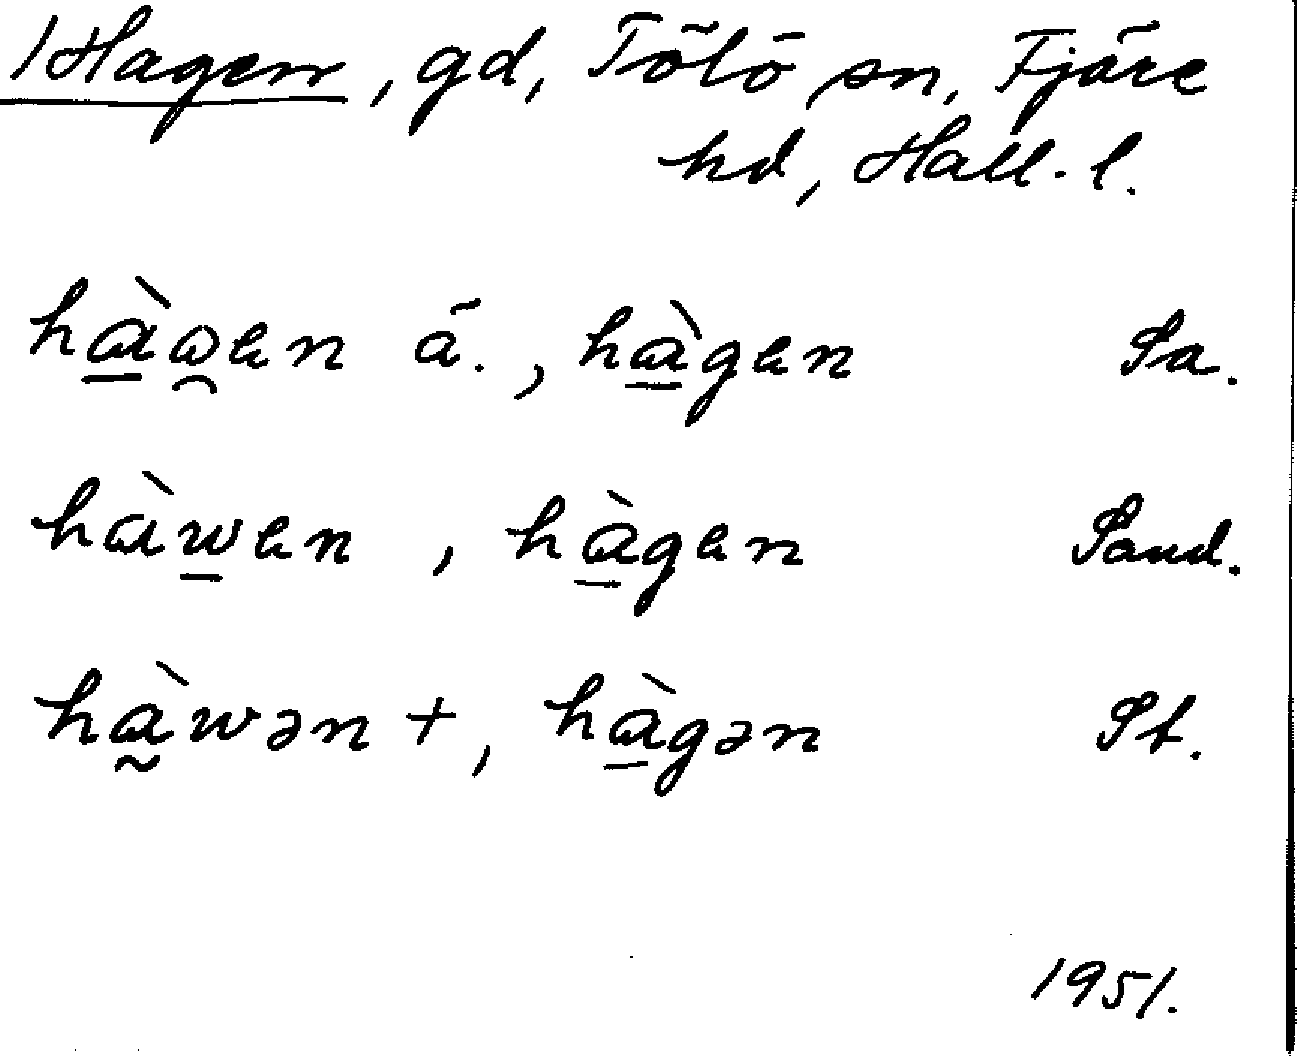 Hagen, gd, Tölö sn, Fjäre
hd, Hall. l.
hɑ̱̀ω̯en ä., hɑ̱̀gen Sa.
hɑ̀w̱en, hɑ̱̀gen Sand.
hɑ̰̀wən +, hɑ̱̀gən St.
1951.